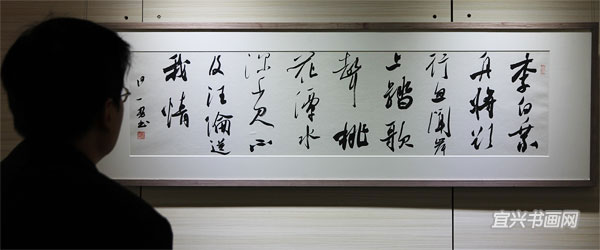 李白乘
舟將欲
行忽聞岸
上踏歌
聲桃
花潭水
深千尺不
及汪倫送
我情
宜兴书画网